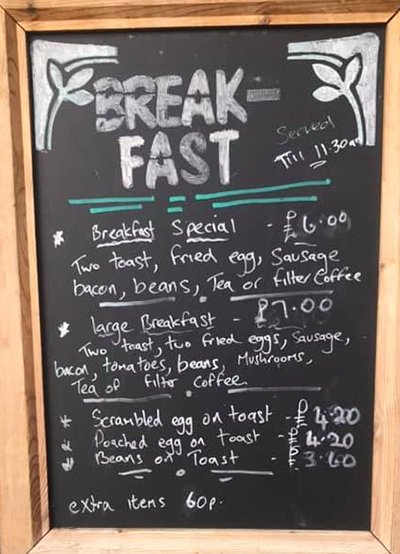 BREAK-
FAST
Served
Till 11.30am
* Breakfast Special - £6.00
Two toast, fried egg, Sausage
bacon, beans, Tea or filter Coffee
* large Breakfast - £7.00
Two toast, two fried eggs, Sausage,
bacon, tomatoes, beans, Mushrooms,
Tea of filter Coffee
* Scrambled egg on toast - £4.20
* Poached egg on toast - £4.20
* Beans on Toast - £3.60
extra items 60p.